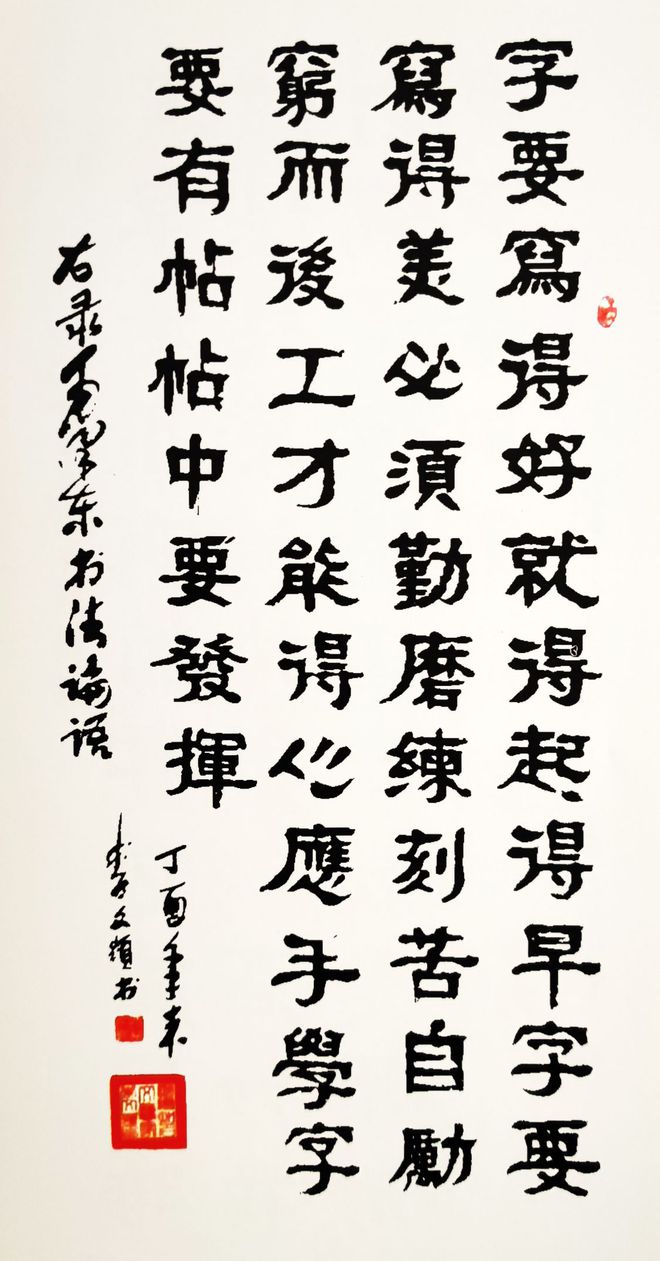 字要寫得好就得起得早字要
寫得美必須勤磨練刻苦自勵
窮而後工才能得心應手學字
要有帖帖中要發揮
右录毛澤东书法論语
丁酉年末
李文领书